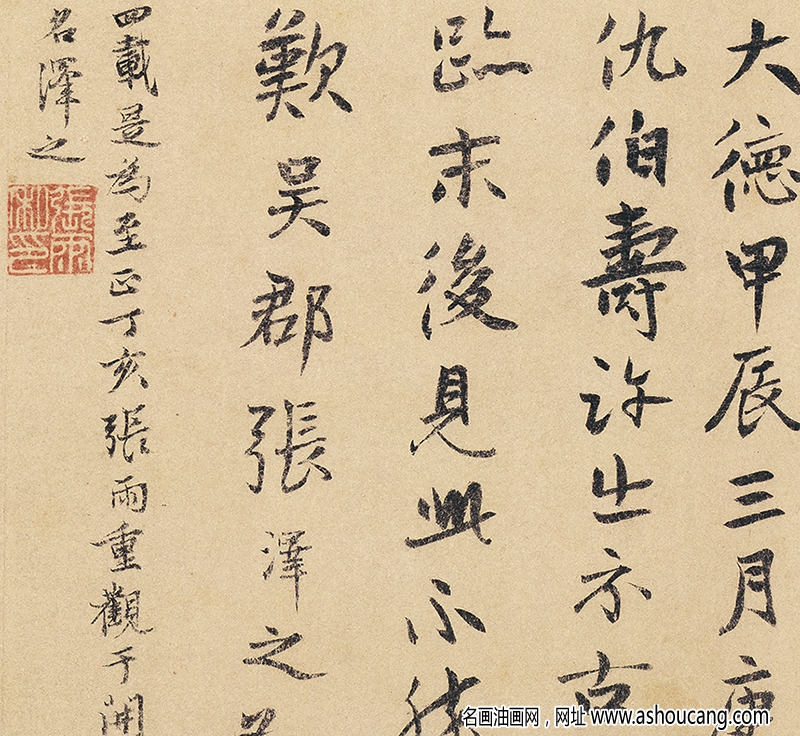 大德甲辰三月庚
仇伯壽許出示古
末後見此不勝
歎吳郡張澤之
四載是為至正丁亥張雨重觀于開
名澤之
張雨私印
名画油画网，网址 www.ashoucang.com